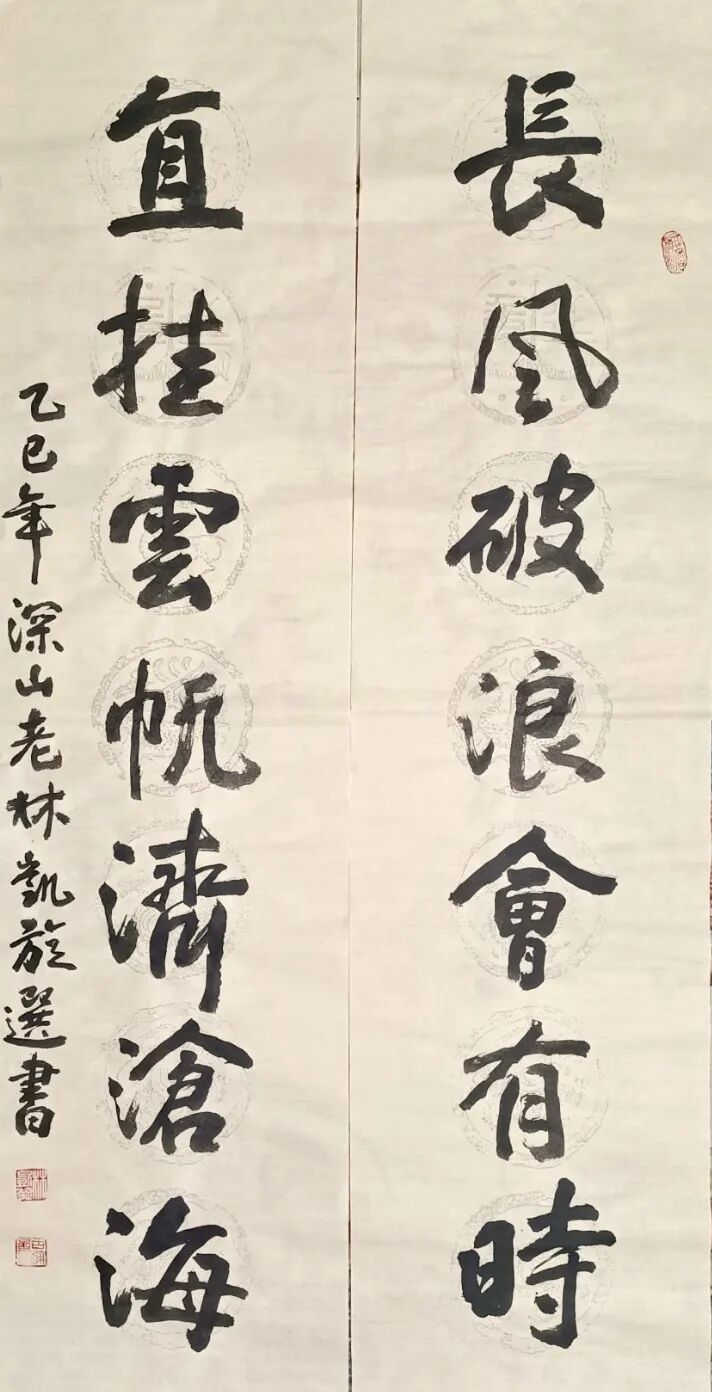 長風破浪會有時
直挂雲帆濟滄海
乙巳年深山老林凱旋選書